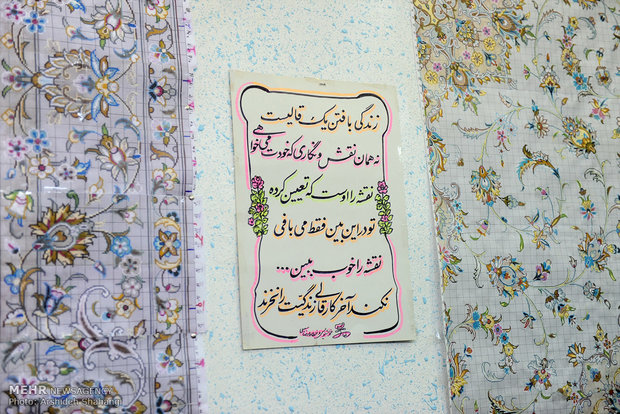 زندگی بافتن یک قالیست
نه همان نقش و نگاری که خودت میخواهی
نقشه را اوست که تعیین کرده
تو در این بین فقط می بافی
نقشه را خوب ببین ...
نکند آخر کار قالی زندگیت را نخرند
MEHR NEWS AGENCY
Photo: Arshideh Shahangi